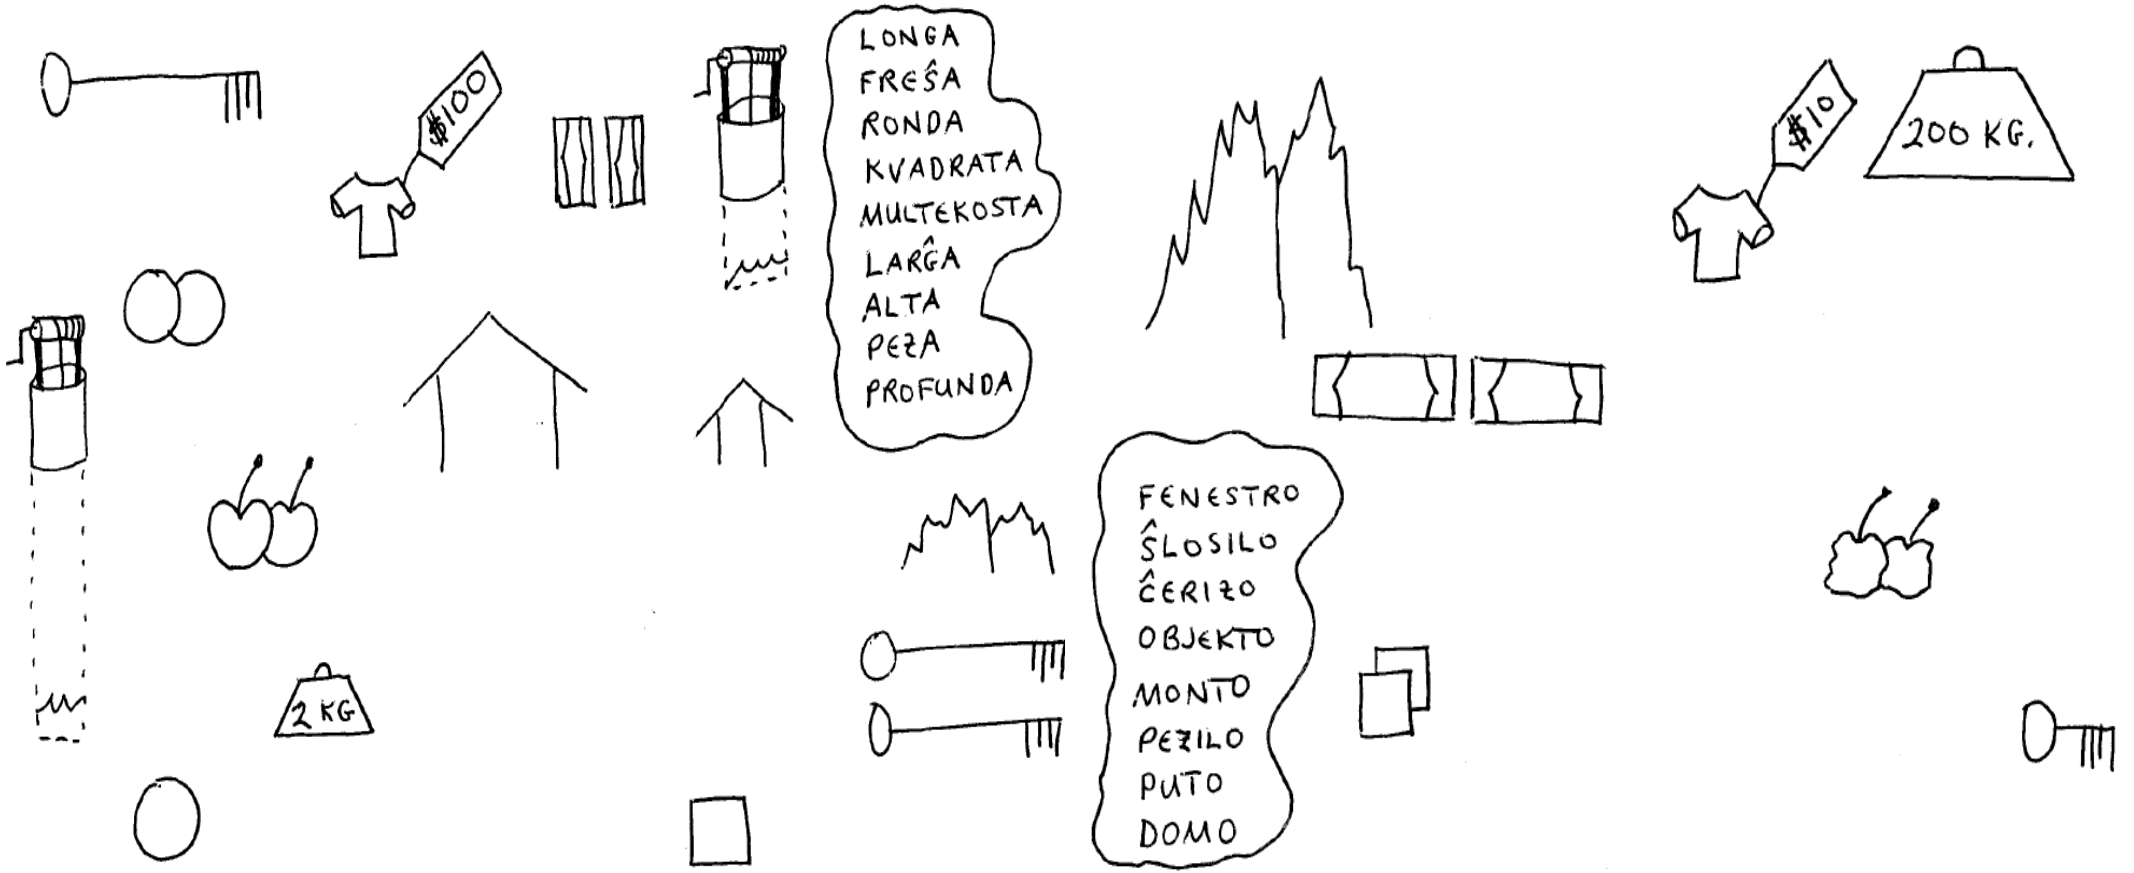 $100
LONGA
FREŜA
RONDA
KVADRATA
MULTEKOSTA
LARĜA
ALTA
PEZA
PROFUNDA
$10
200 KG.
FENESTRO
ŜLOSILO
ĈERIZO
OBJEKTO
MONTO
PEZILO
PUTO
DOMO
2 KG